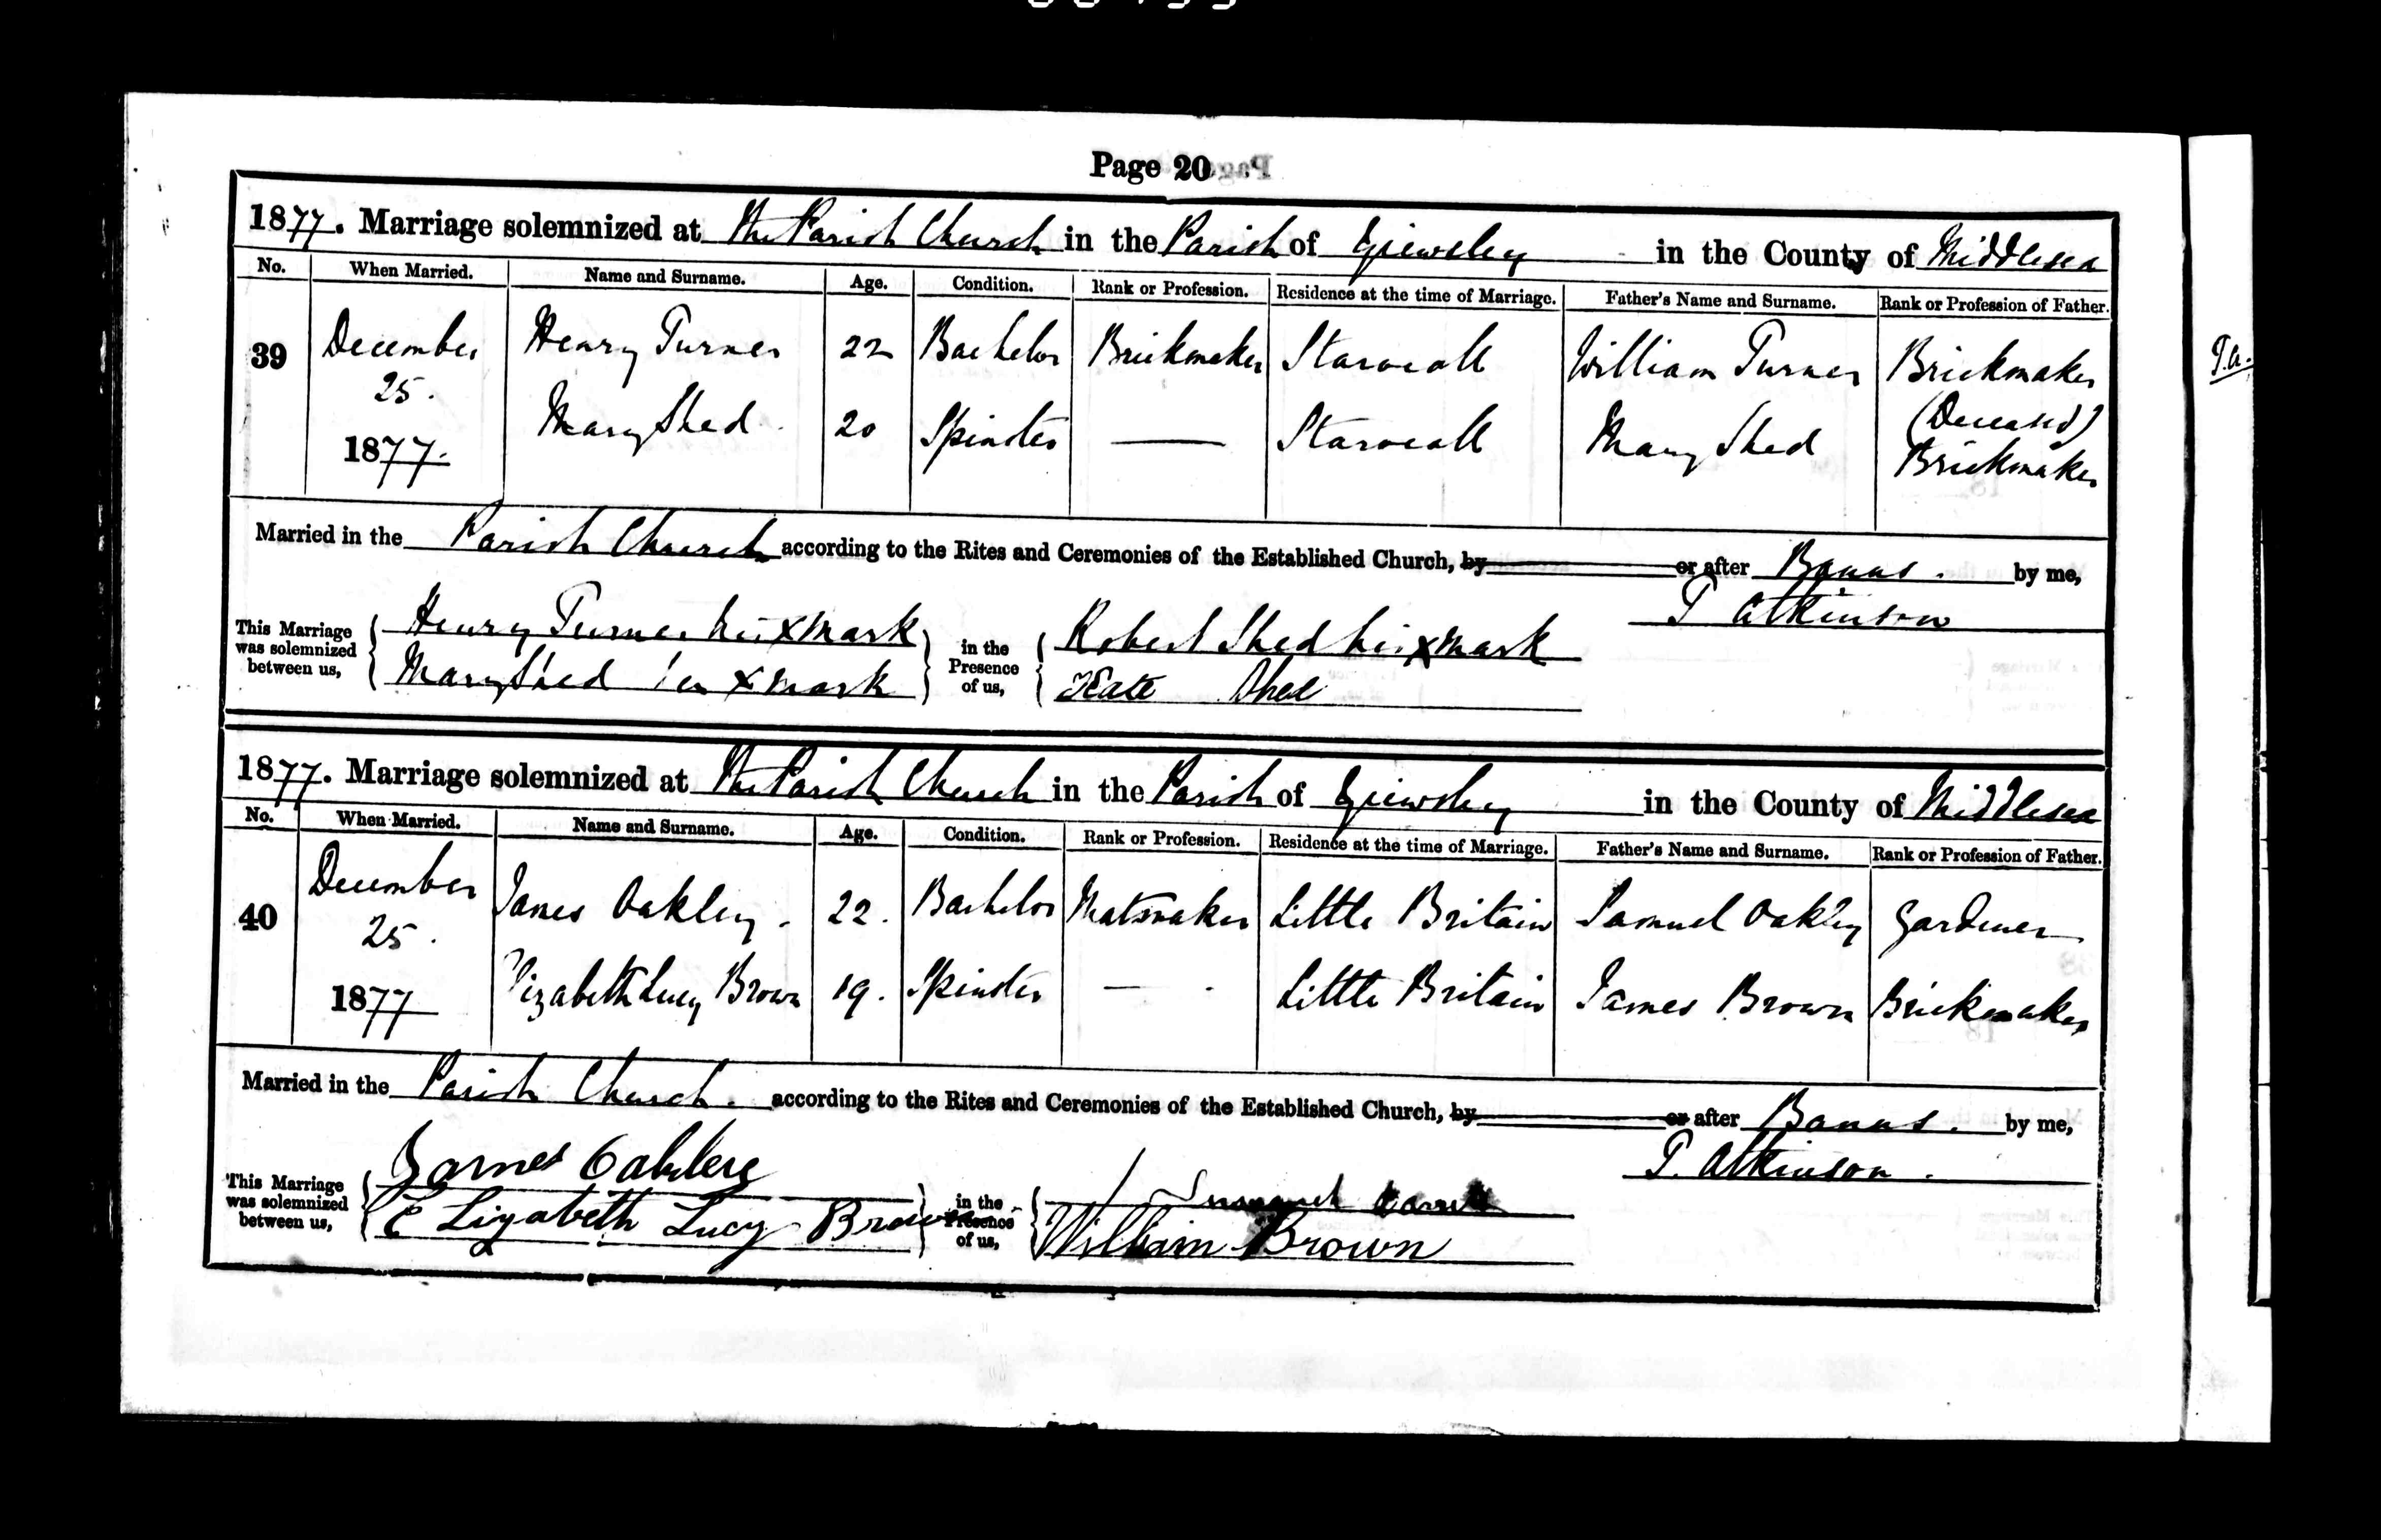 Page 20
1877. Marriage solemnized at the Parish Church in the Parish of Yiewsley in the County of Middlesex
No. When Married. Name and Surname. Age. Condition. Rank or Profession. Residence at the time of Marriage. Father's Name and Surname. Rank or Profession of Father.
39 December 25. 1877. Henry Turner 22 Bachelor Brickmaker Starveall William Turner Brickmaker (Deceased)
Mary Shed 20 Spinster — Starveall Mary Shed Brickmaker
Married in the Parish Church according to the Rites and Ceremonies of the Established Church, by or after Banns. by me,
T Atkinson
This Marriage was solemnized between us, Henry Turner his X mark in the Presence of us, Robert Shed his X mark
Mary Shed her X mark Kate Shed
1877. Marriage solemnized at the Parish Church in the Parish of Yiewsley in the County of Middlesex
No. When Married. Name and Surname. Age. Condition. Rank or Profession. Residence at the time of Marriage. Father's Name and Surname. Rank or Profession of Father.
40 December 25. 1877 James Oakley. 22. Bachelor Matsmaker Little Britain Samuel Oakley Gardener
Elizabeth Lucy Brown 19. Spinster — Little Britain James Brown Brickmaker
Married in the Parish Church. according to the Rites and Ceremonies of the Established Church, by or after Banns. by me,
T. Atkinson.
This Marriage was solemnized between us, James Oakley in the Presence of us,
Elizabeth Lucy Brown William Brown